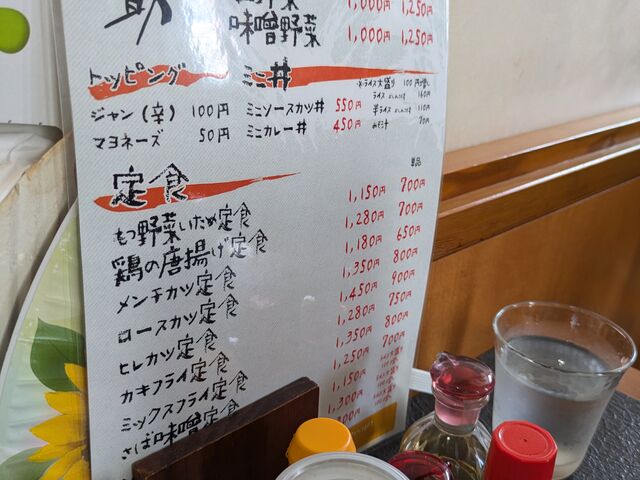 1,000円 1,250円
味噌野菜 1,000円 1,250円
トッピング ミニ丼
※ライス大盛り 100円増し
ジャン(辛) 100円 ミニソースカツ丼 550円
マヨネーズ 50円 ミニカレー丼 450円
半ライス 110円
みそ汁 70円
定食 単品
もつ野菜いため定食 1,150円 700円
鶏の唐揚げ定食 1,280円 700円
メンチカツ定食 1,180円 650円
ロースカツ定食 1,350円 800円
ヒレカツ定食 1,450円 900円
カキフライ定食 1,280円 750円
ミックスフライ定食 1,350円 800円
さば味噌定食 1,250円 700円
1,150円
1,300円